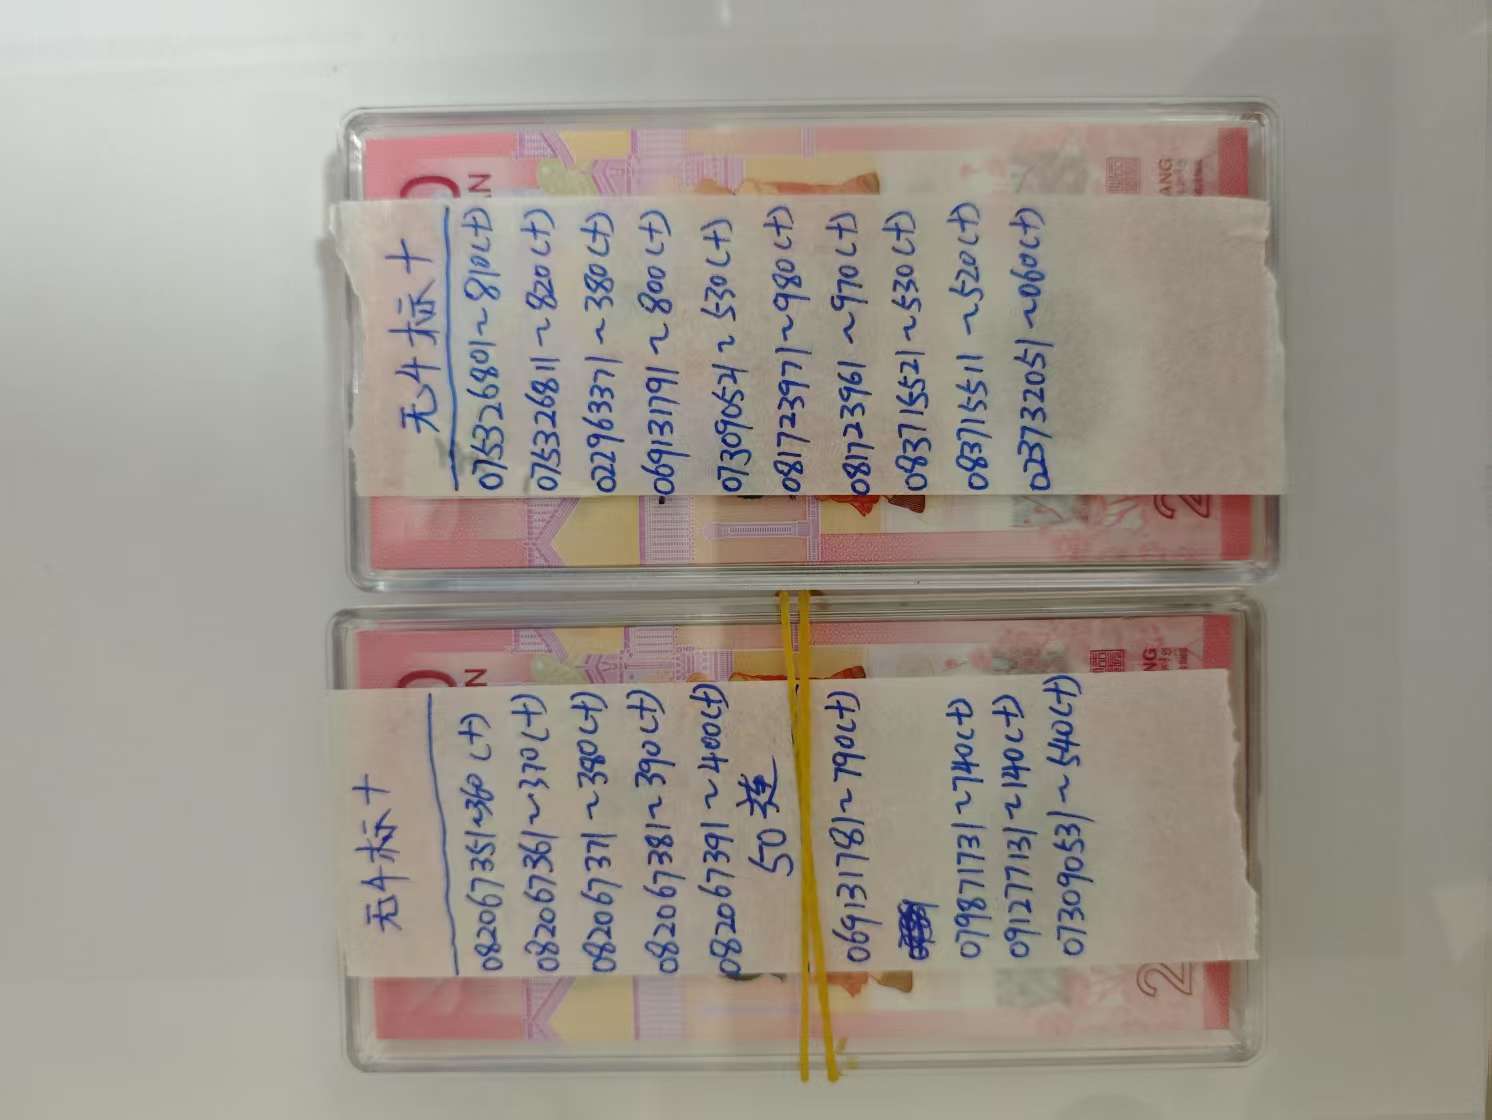 无4标十
075326801~810(十)
075326811~820(十)
022963371~380(十)
069131791~800(十)
073090521~530(十)
081723971~980(十)
081723961~970(十)
083715521~530(十)
083715511~520(十)
023732051~060(十)
AN
ANG
2
无4标十
082067351~360(十)
082067361~370(十)
082067371~380(十)
082067381~390(十)
082067391~400(十)
50连
069131781~790(十)
079871731~740(十)
091277131~140(十)
073090531~540(十)
N
NG
2